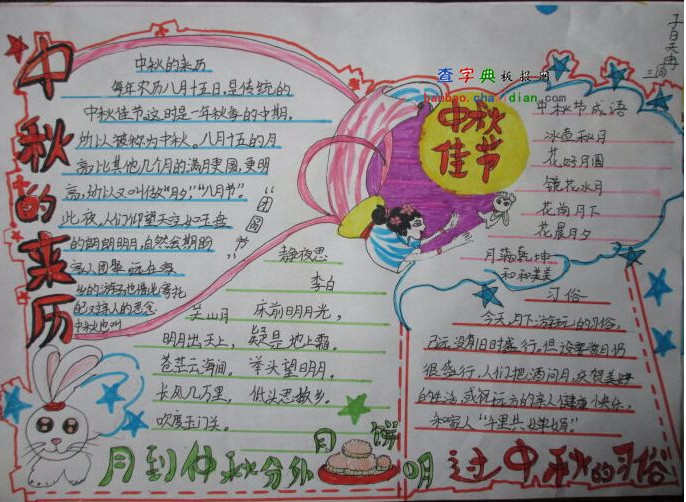 中秋的来历
中秋的来历
每年农历八月十五日,是传统的
中秋佳节这时是一年秋季的中期,
所以被称为中秋。八月十五的月
亮比其他几个月的满月更圆,更明
亮,所以又叫做"月夕","八月节"。
此夜,人们仰望天空如玉盘
的朗朗明月,自然会期盼
家人团聚 远在
出的游子也借此寄托
中秋也叫
"团圆节"
静夜思
李白
床前明月光,
疑是地上霜。
举头望明月,
低头思故乡。
关山月
明月出天上,
苍茫云海间。
长风几万里,
吹度玉门关。
查字典板报网
banbao.chazidian.com
中秋
佳节
中秋节成语
冰壶秋月
花好月圆
镜花水月
花前月下
花晨月夕
月满乾坤
和和美美
习俗
今天,月下游玩的习俗,
已远没有旧时盛行。但设宴赏月仍
很盛行,人们把酒问月,庆贺美好
的生活,或祝远方的亲人健康快乐,
和家人"千里共婵娟"
月到仲秋分外明
月饼
过中秋的习俗